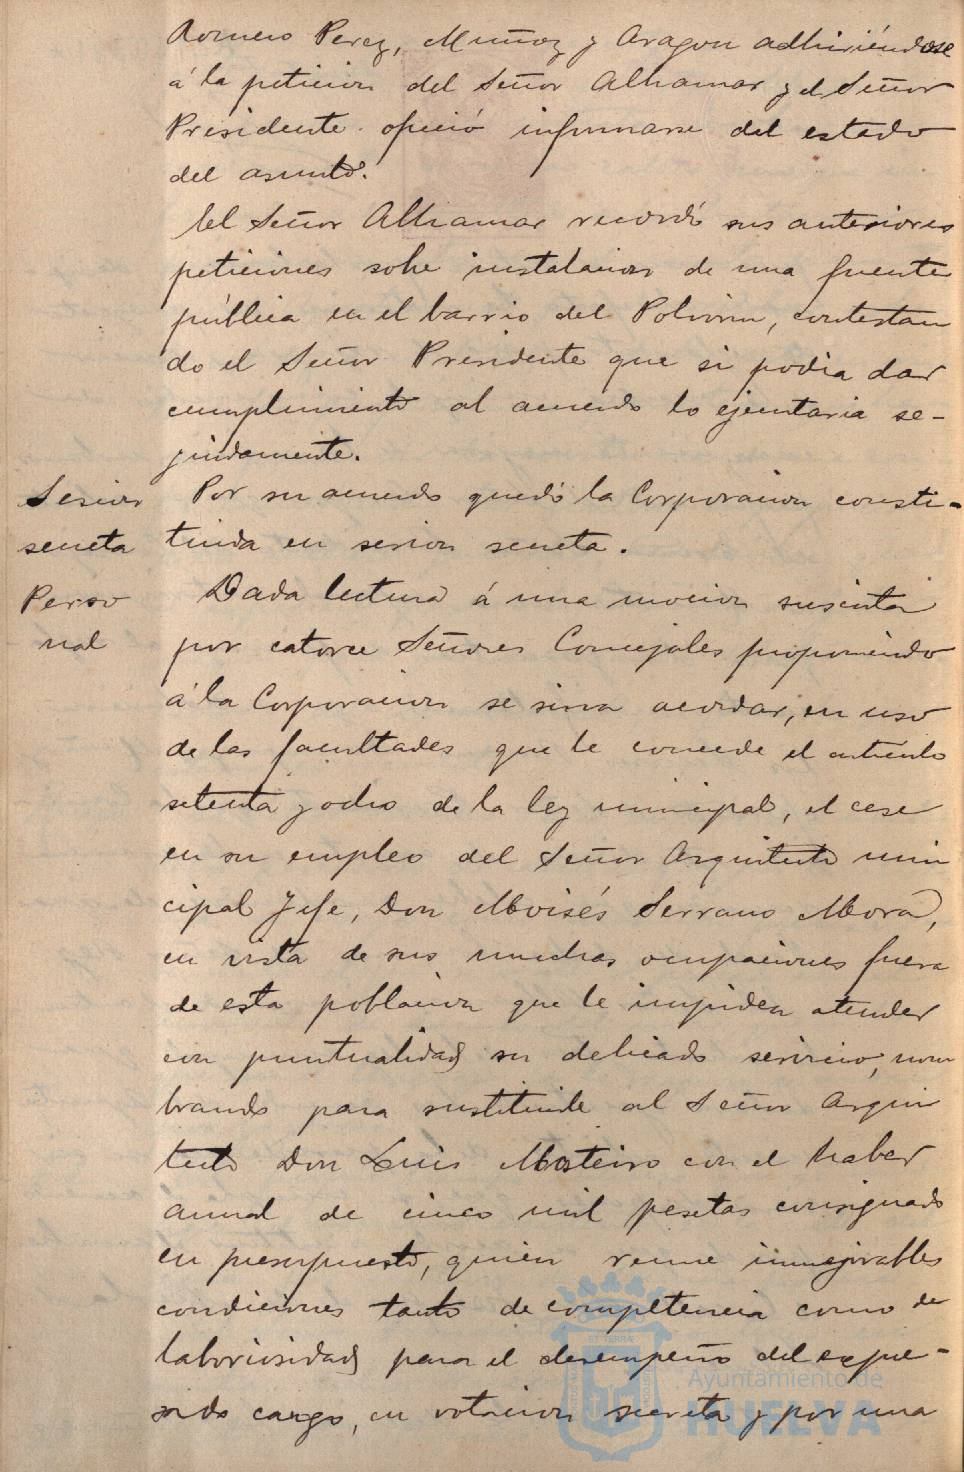 Romero Perez, Muñoz y Aragon adhiriéndose
á la peticion del Señor Alhamar y el Señor
Presidente ofreció informarse del estado
del asunto.
El Señor Alhamar recordó sus anteriores
peticiones sobre instalacion de una fuente
pública en el barrio del Polvorin, contestan
do el Señor Presidente que si podia dar
cumplimiento al acuerdo lo ejecutaria se-
guidamente.
Sesion
secreta
Por su acuerdo quedó la Corporacion consti-
tuida en sesion secreta.
Perso
nal
Dada lectura á una mocion suscrita
por catorce Señores Concejales proponiendo
á la Corporacion se sirva acordar, en uso
de las facultades que le concede el articulo
setenta y ocho de la ley municipal, el cese
en su empleo del Señor Arquitecto muni
cipal Jefe, Don Moisés Serrano Mora,
en vista de sus muchas ocupaciones fuera
de esta poblacion que le impiden atender
con puntualidad su delicado servicio, nom
brando para sustituirle al Señor Arqui
tecto Don Luis Mosteiro con el haber
anual de cinco mil pesetas consignado
en presupuesto, quien reune inmejorables
condiciones tanto de competencia como de
laboriosidad para el desempeño del expre-
sado cargo, en votacion secreta y por una
Ayuntamiento de
HUELVA